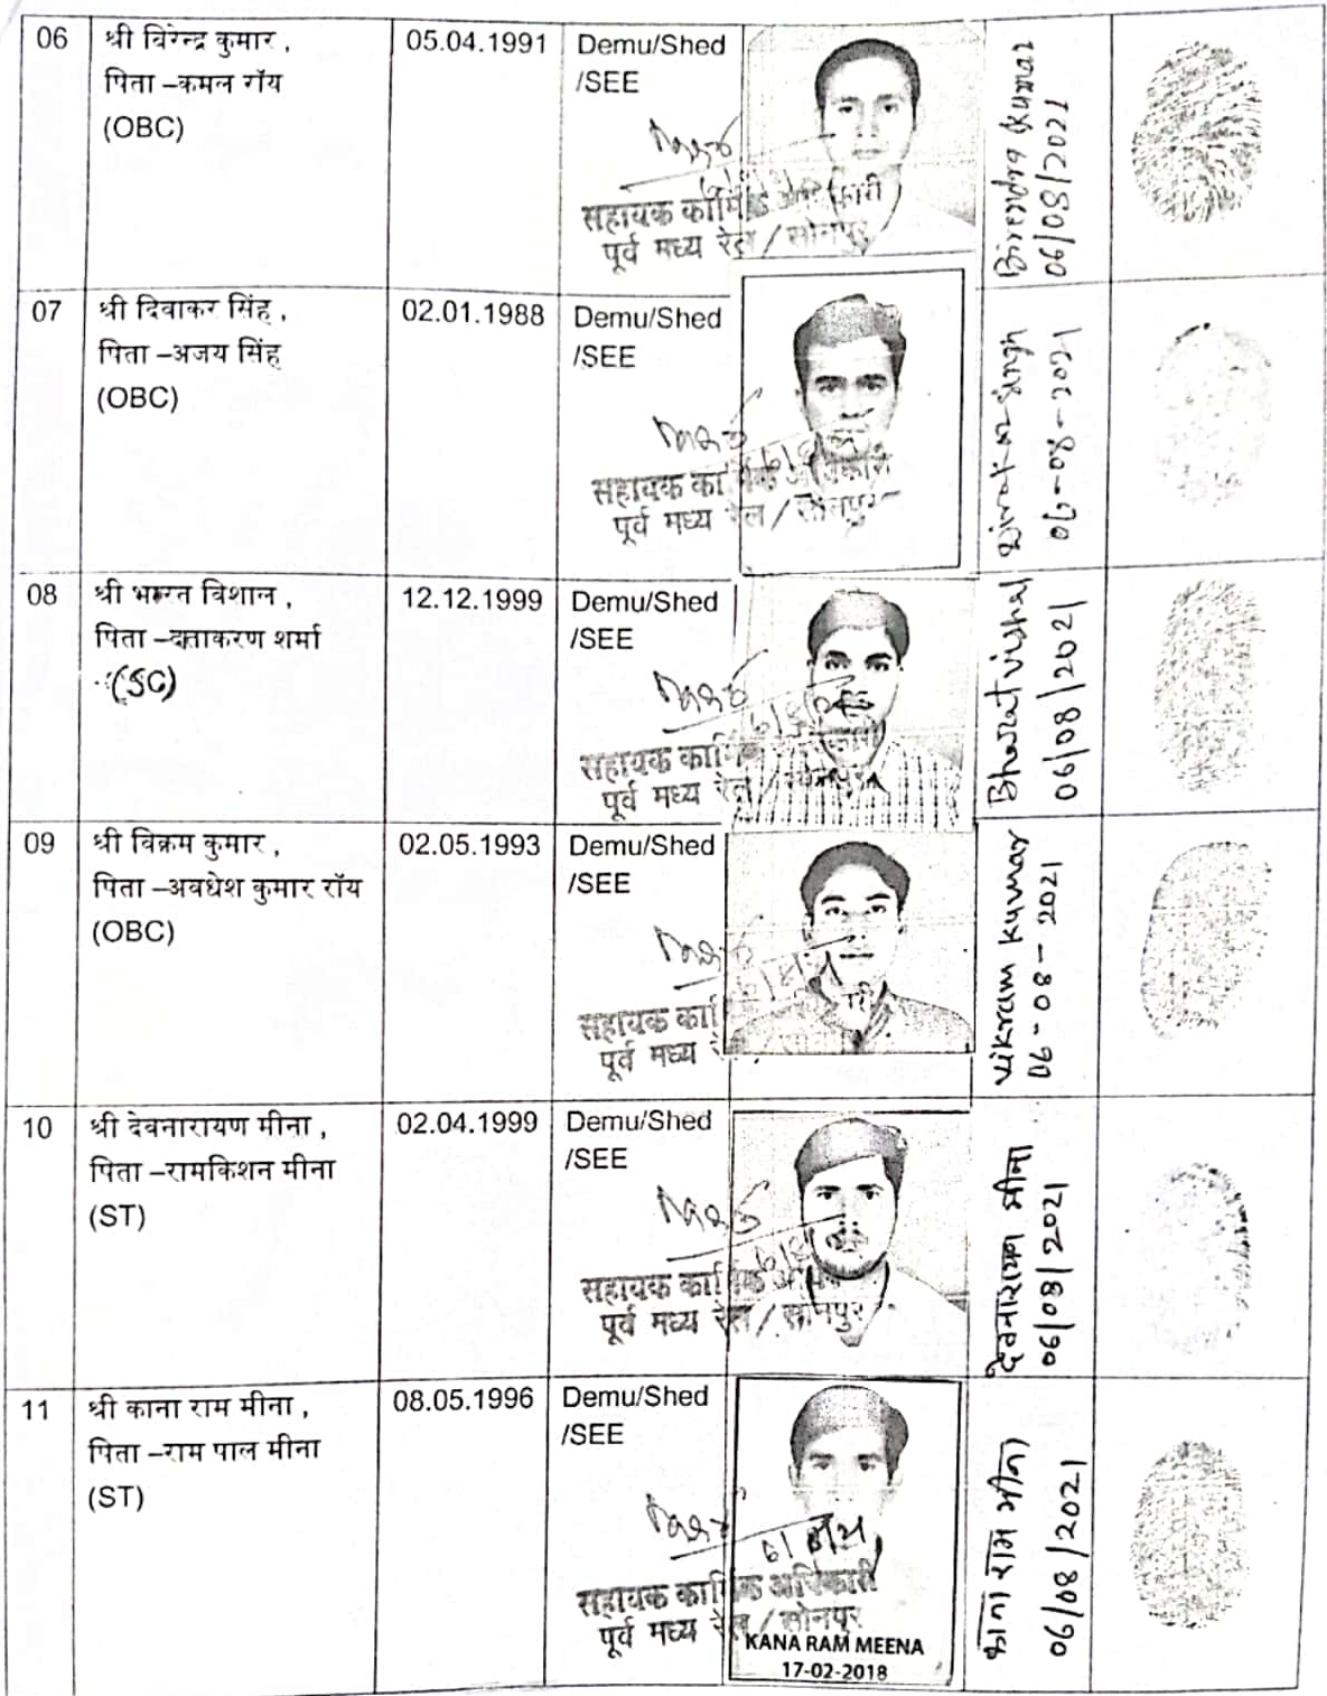 06
श्री विरेन्द्र कुमार ,
पिता –कमल रॉय
(OBC)
05.04.1991
Demu/Shed
/SEE
सहायक कार्मिक अधिकारी
पूर्व मध्य रेल / सोनपुर
Birendra Kumar
06/08/2021
07
श्री दिवाकर सिंह ,
पिता –अजय सिंह
(OBC)
02.01.1988
Demu/Shed
/SEE
सहायक कार्मिक अधिकारी
पूर्व मध्य रेल / सोनपुर
Singh
06-08-2021
08
श्री भारत विशाल ,
पिता – शर्मा
(SC)
12.12.1999
Demu/Shed
/SEE
सहायक कार्मिक अधिकारी
पूर्व मध्य रेल / सोनपुर
Bharat vishal
06/08/2021
09
श्री विक्रम कुमार ,
पिता –अवधेश कुमार रॉय
(OBC)
02.05.1993
Demu/Shed
/SEE
सहायक
पूर्व मध्य
Vikram Kumar
06-08-2021
10
श्री देवनारायण मीना ,
पिता –रामकिशन मीना
(ST)
02.04.1999
Demu/Shed
/SEE
सहायक कार्मिक
पूर्व मध्य रेल / सोनपुर
देवनारायण मीना
06/08/2021
11
श्री काना राम मीना ,
पिता –राम पाल मीना
(ST)
08.05.1996
Demu/Shed
/SEE
सहायक कार्मिक अधिकारी
पूर्व मध्य रेल / सोनपुर
KANA RAM MEENA
17-02-2018
काना राम मीना
06/08/2021